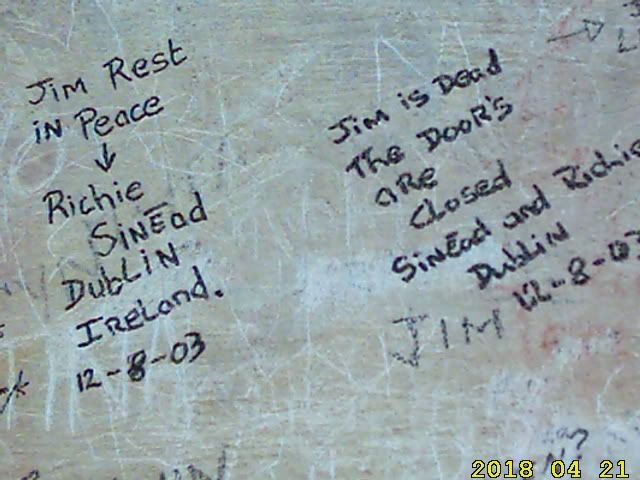 Jim Rest
in Peace
↓
Richie
Sinēad
Dublin
Ireland.
12-8-03
Jim is Dead
The Door's
are
Closed
Sinēad and Richie
Dublin
12-8-03
JIM
2018 04 21